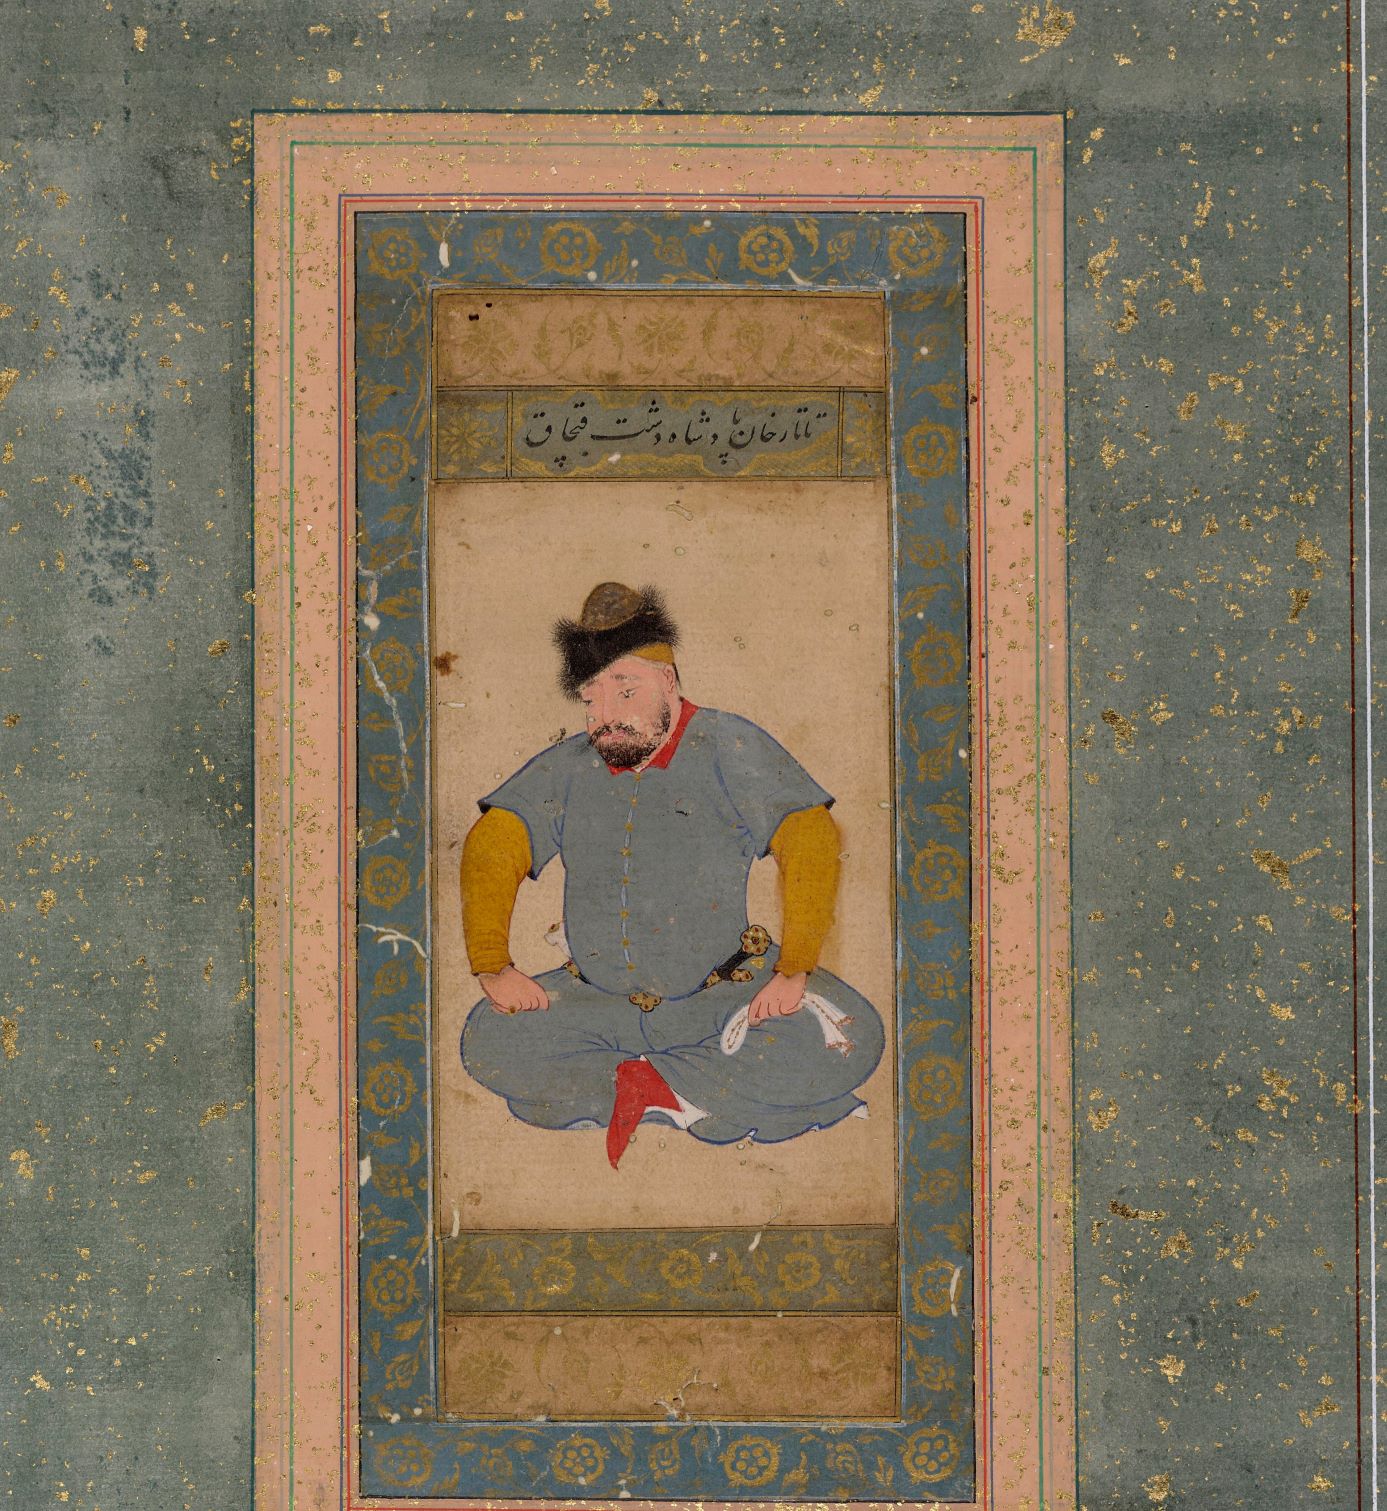 تاتار خان پادشاه دشت قبچاق